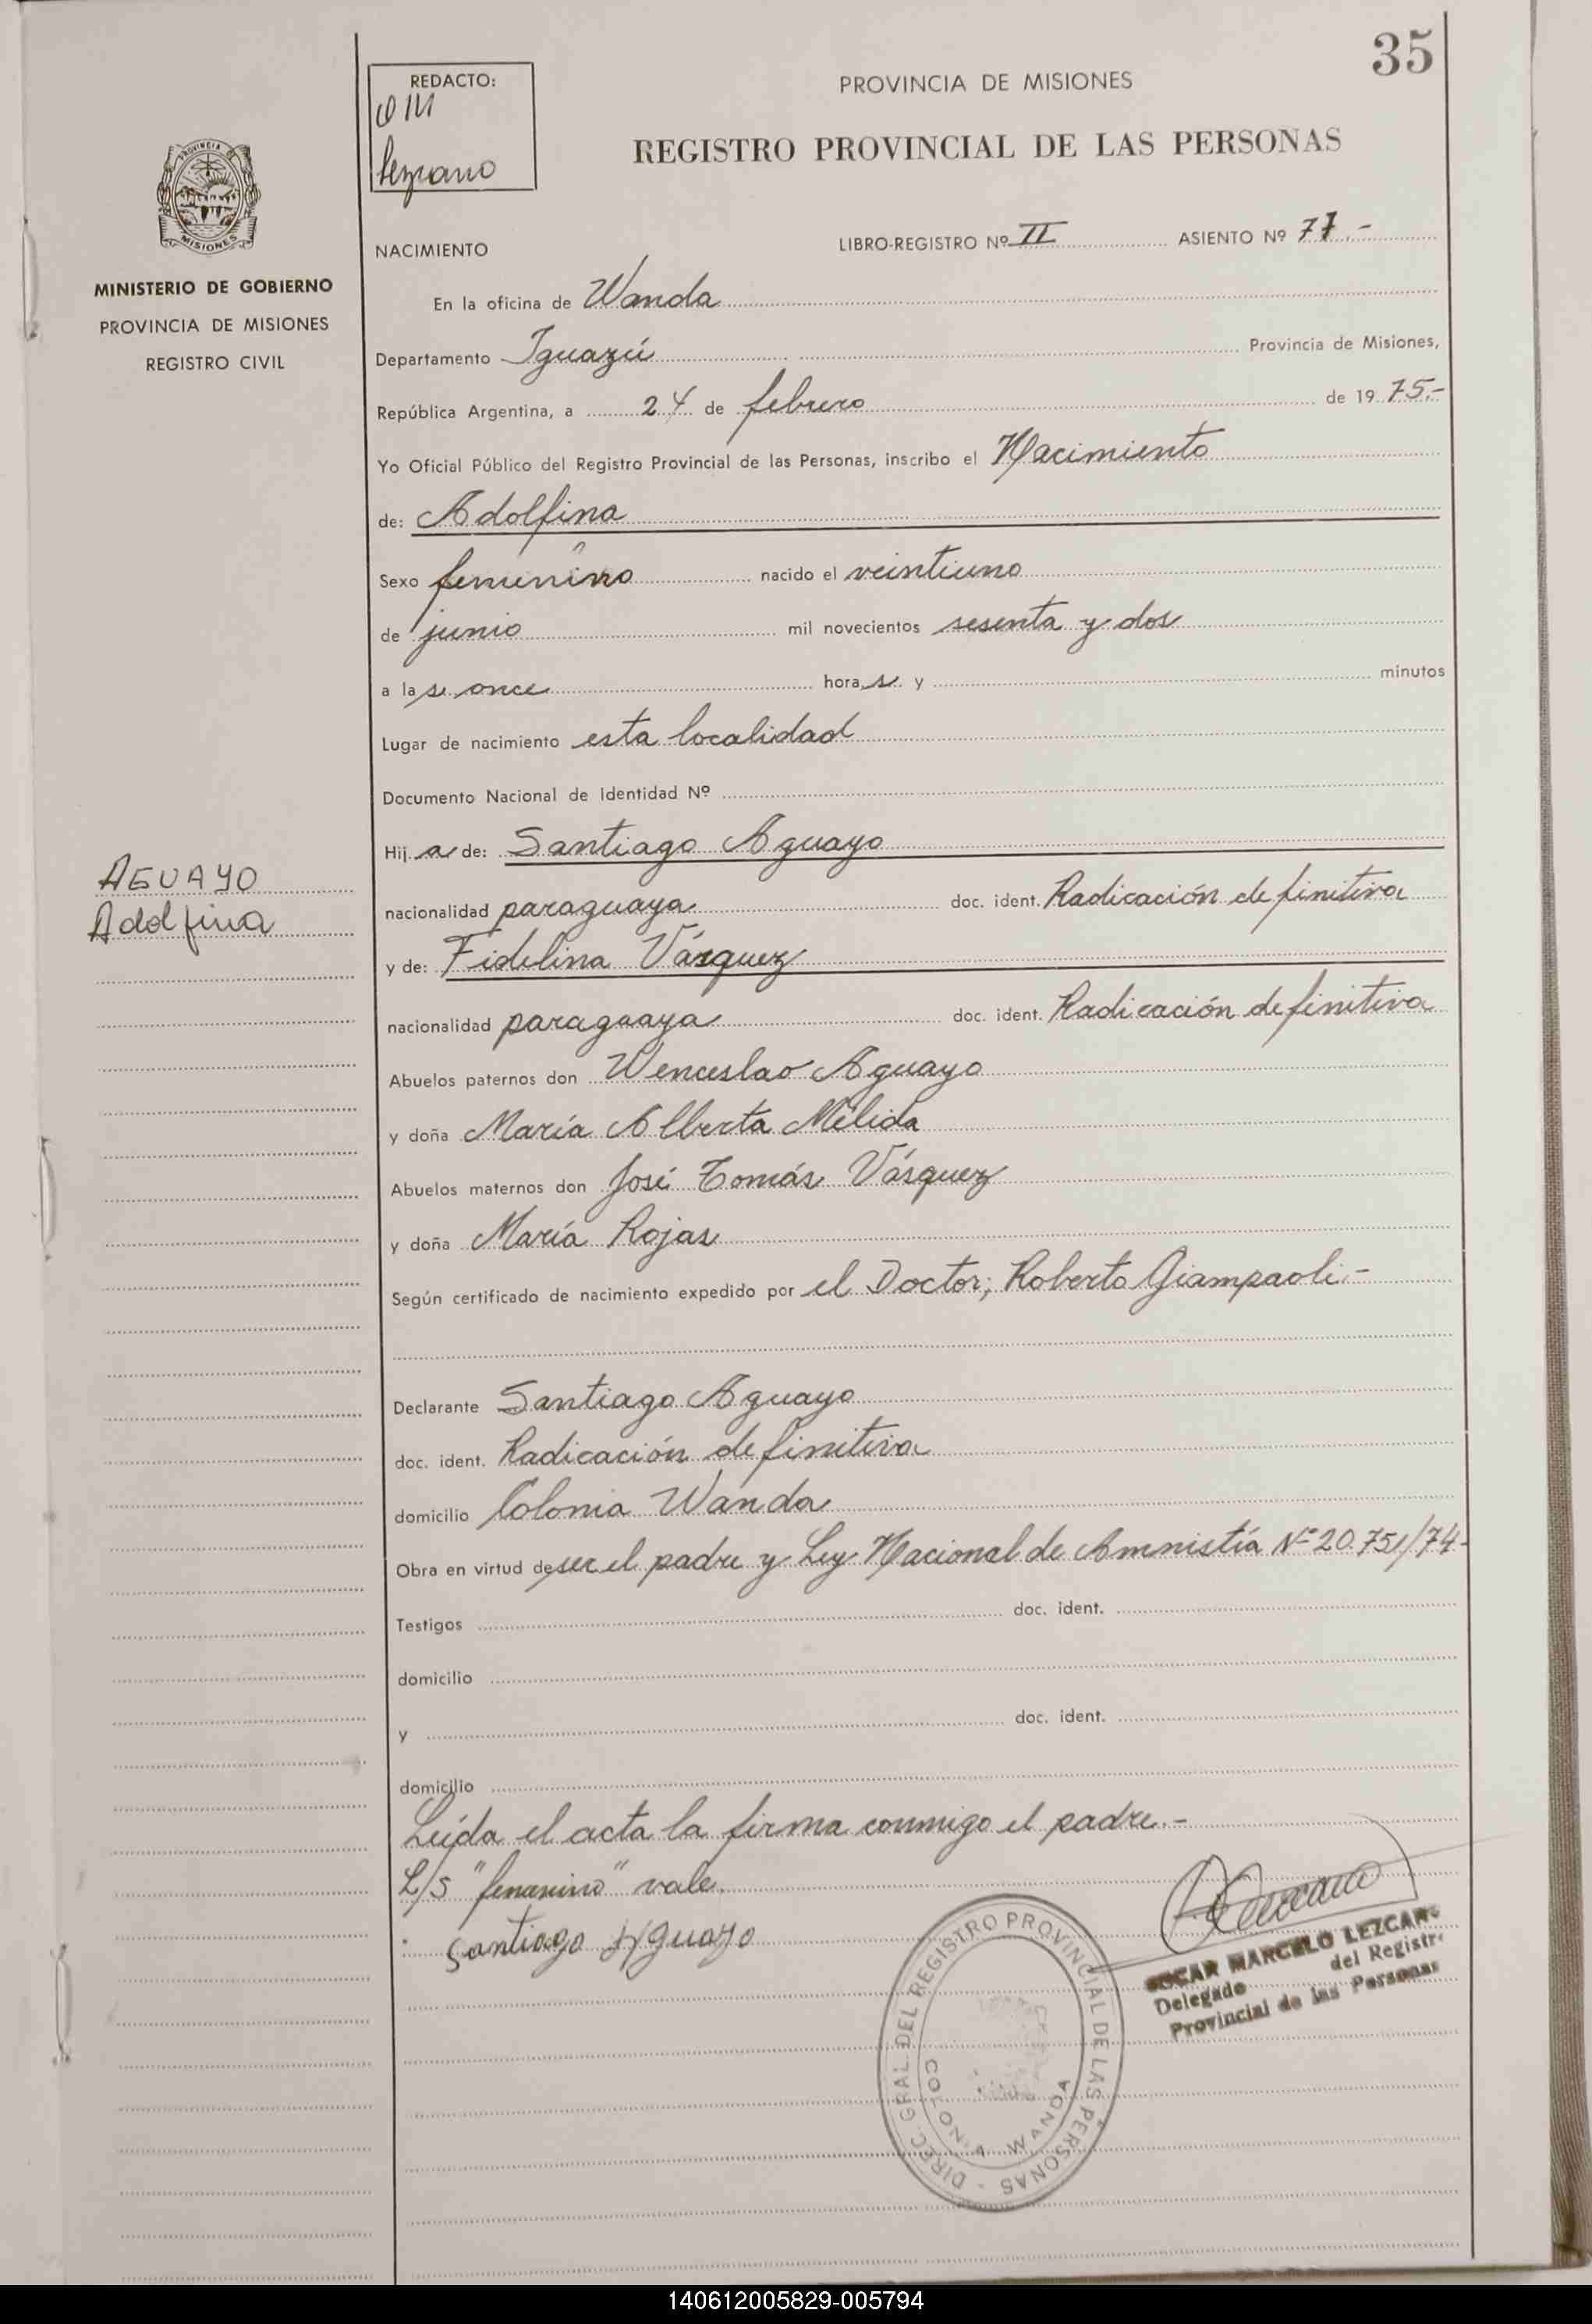 35
REDACTO:
OM
Lezcano
PROVINCIA DE MISIONES
REGISTRO PROVINCIAL DE LAS PERSONAS
PROVINCIA
MISIONES
MINISTERIO DE GOBIERNO
PROVINCIA DE MISIONES
REGISTRO CIVIL
NACIMIENTO
LIBRO-REGISTRO Nº II ASIENTO Nº 77.-
En la oficina de Wanda
Departamento Iguazú Provincia de Misiones,
República Argentina, a 24 de febrero de 19 75.-
Yo Oficial Público del Registro Provincial de las Personas, inscribo el Nacimiento
de: Adolfina
Sexo femenino nacido el veintiuno
de junio mil novecientos sesenta y dos
a las once horas y minutos
Lugar de nacimiento esta localidad
Documento Nacional de Identidad Nº
Hija de: Santiago Aguayo
AGUAYO
Adolfina
nacionalidad paraguaya doc. ident. Radicación definitiva
y de: Fidelina Vásquez
nacionalidad paraguaya doc. ident. Radicación definitiva
Abuelos paternos don Wenceslao Aguayo
y doña María Alberta Mélida
Abuelos maternos don José Tomás Vásquez
y doña María Rojas
Según certificado de nacimiento expedido por el Doctor; Roberto Giampaoli.-
Declarante Santiago Aguayo
doc. ident. Radicación definitiva
domicilio Colonia Wanda
Obra en virtud de ser el padre y Ley Nacional de Amnistía Nº 20.751/74-
Testigos doc. ident.
domicilio
y doc. ident.
domicilio
Leída el acta la firma conmigo el padre.-
L/S "femenino" vale.
Santiago Aguayo
OSCAR MARCELO LEZCANO
Delegado del Registro
Provincial de las Personas
DIREC. GRAL. DEL REGISTRO PROVINCIAL DE LAS PERSONAS -
COLONIA WANDA
140612005829-005794